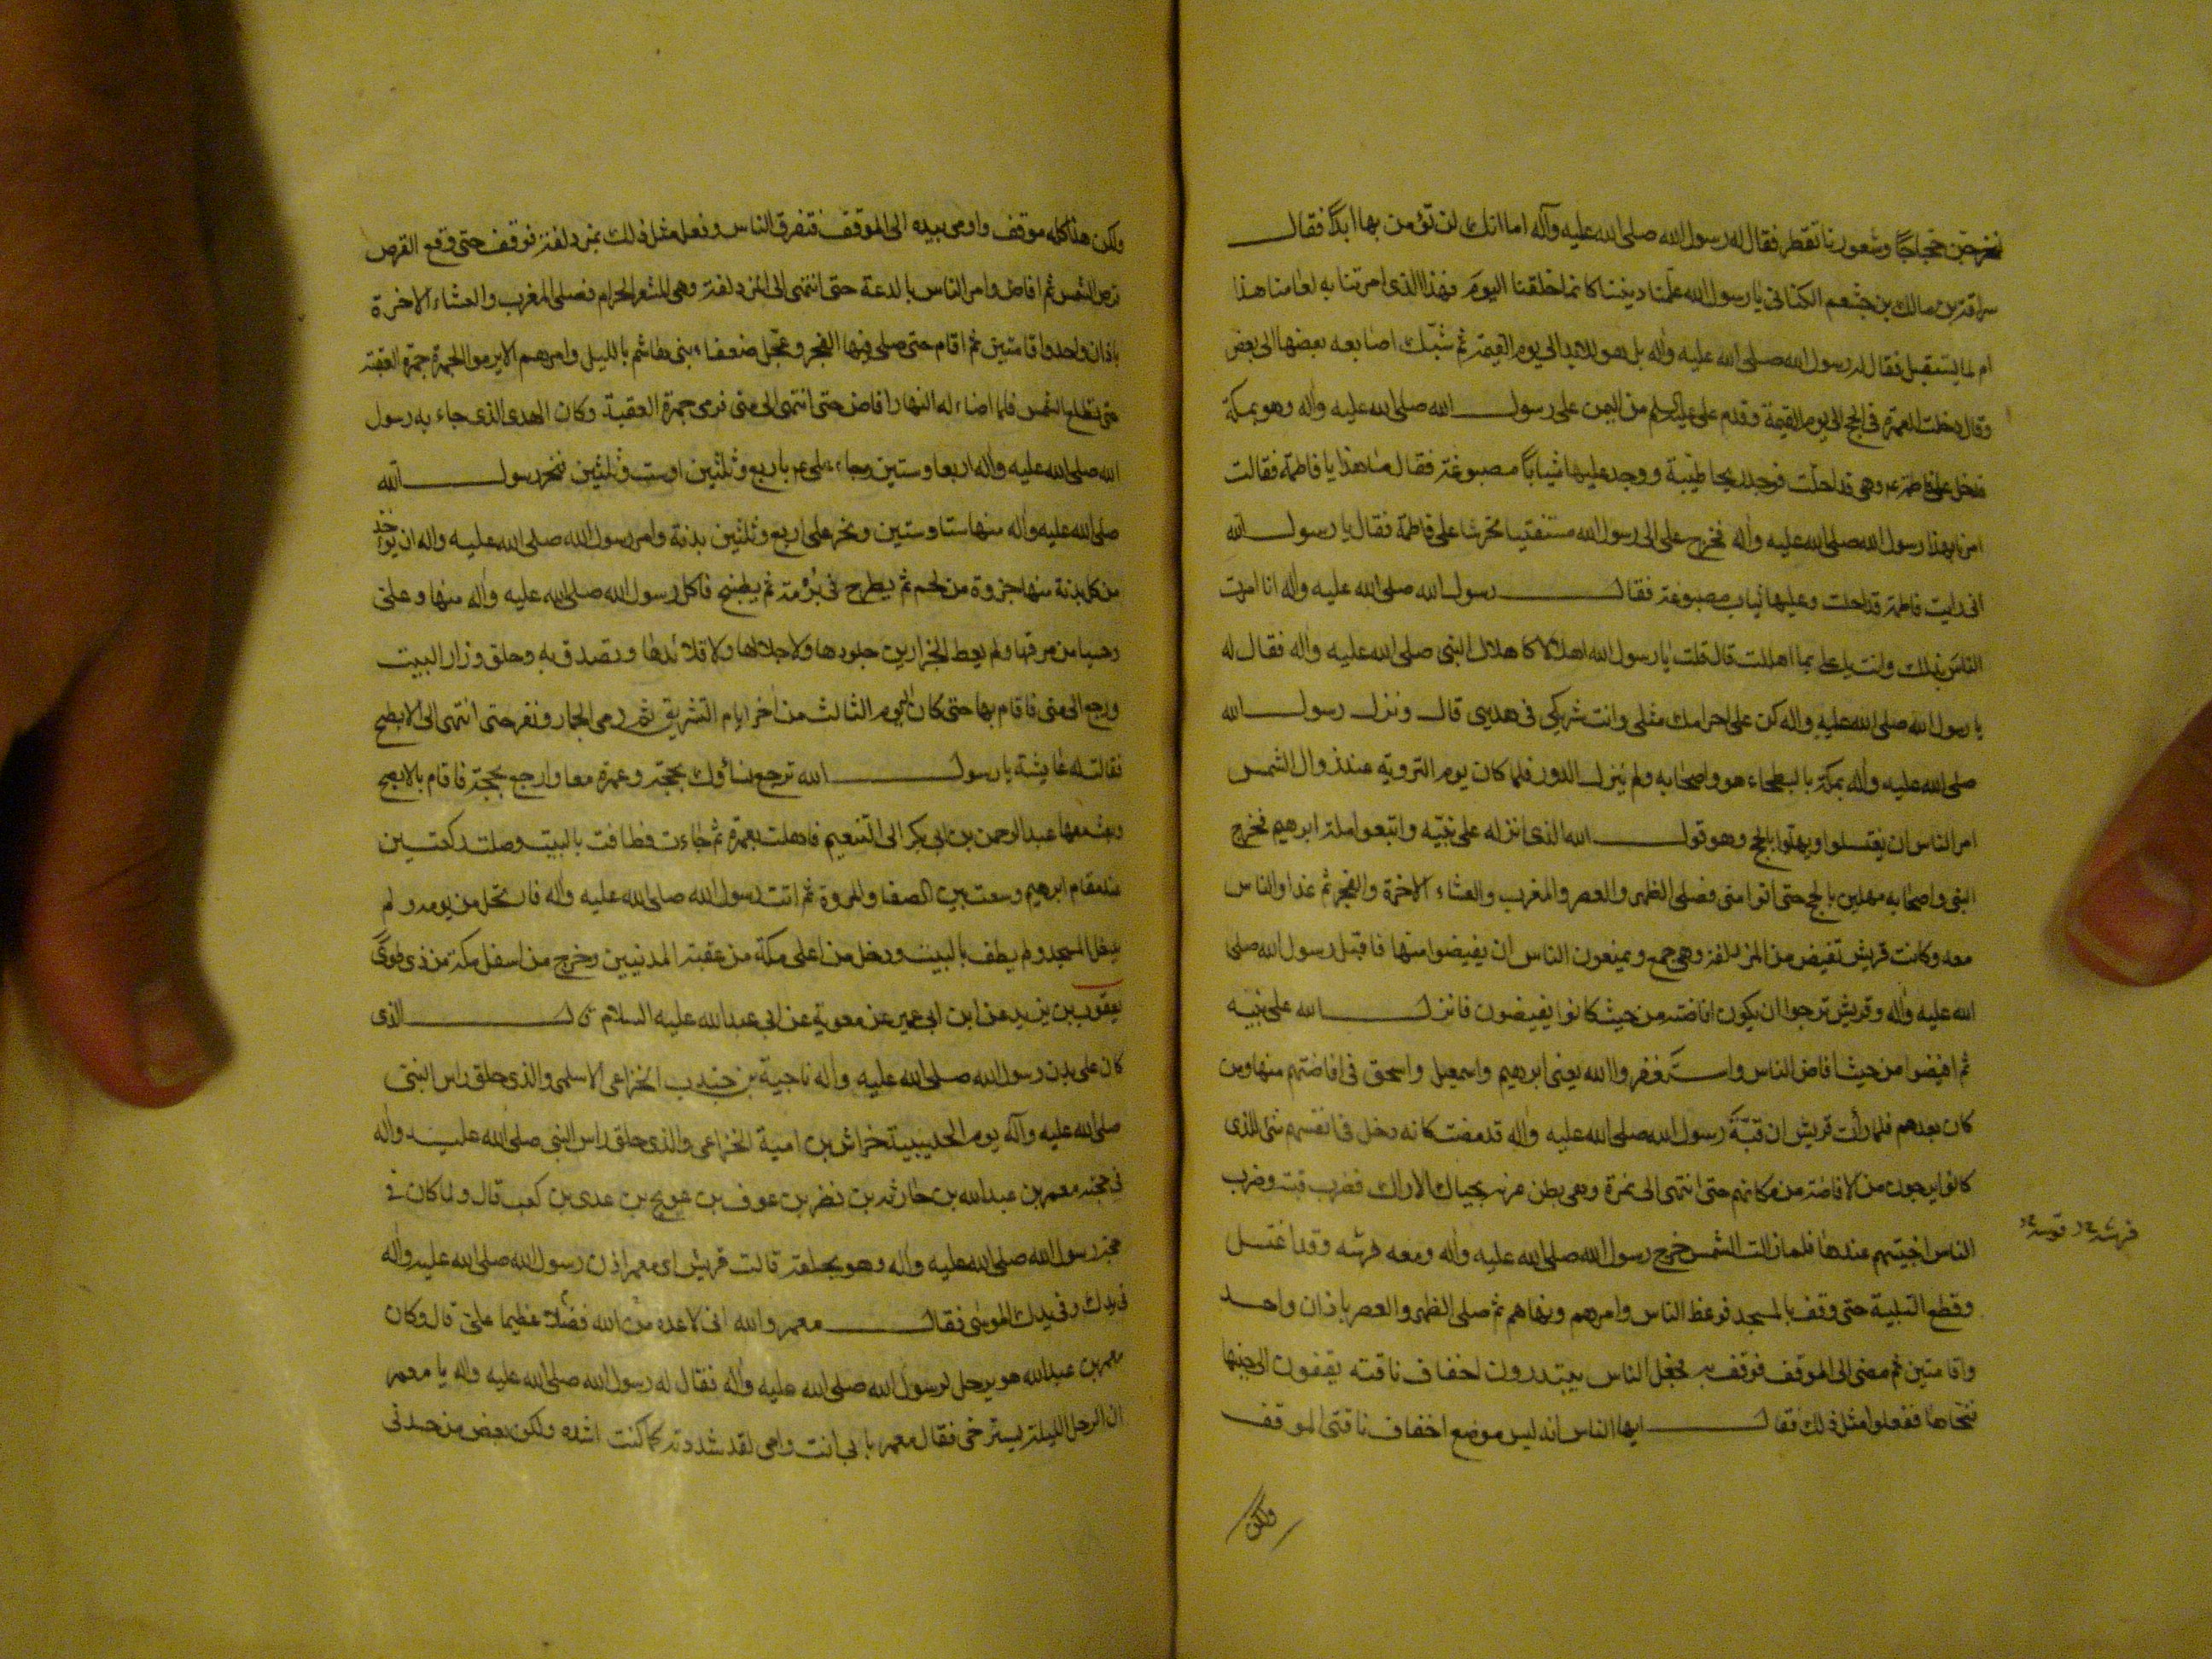 لنخرجن حجاجا وشعورنا تقطر فقال له رسول الله صلى الله عليه وآله اما انك لن تؤمن بها ابداً فقال
سراقة بن مالك بن جشعم الكناني يا رسول الله علمنا ديننا كانما خلقنا اليوم فهذا الذي امرتنا به لعامنا هذا
ام لما يستقبل فقال له رسول الله صلى الله عليه وآله بل هو للابد الى يوم القيمة ثم شبك اصابعه بعضها الى بعض
وقال دخلت العمرة في الحج الى يوم القيمة وقدم علي عليه السلم من اليمن على رسول الله صلى الله عليه وآله وهو بمكة
فدخل على فاطمة ع وهى قد احلت فوجد ريحا طيبة ووجد عليها ثياباً مصبوغة فقال ما هذا يا فاطمة فقالت
امرنا بهذا رسول الله صلى الله عليه وآله فخرج على الى رسول الله مستفتيا محرشا على فاطمة فقال يا رسول الله
انى رايت فاطمة قد احلت وعليها ثياب مصبوغة فقال رسول الله صلى الله عليه وآله انا امرت
الناس بذلك وانت يا على بما اهللت قال قلت يا رسول الله اهلالا كاهلال النبى صلى الله عليه وآله فقال له
يا رسول الله صلى الله عليه وآله كن على احرامك مثلى وانت شريكي في هديي قال ونزل رسول الله
صلى الله عليه وآله بمكة بالبطحاء هو واصحابه ولم ينزل الدور فلما كان يوم التروية عند زوال الشمس
امر الناس ان يغتسلوا ويهلوا بالحج وهو قول الله الذى انزله على نبيه واتبعوا ملة ابرهيم فخرج
النبى واصحابه مهلين بالحج حتى اتوا منى فصلى الظهر والعصر والمغرب والعشاء الاخرة والفجر ثم غدا والناس
معه وكانت قريش تفيض من المزدلفة وهى جمع ويمنعون الناس ان يفيضوا منها فاقبل رسول الله صلى
الله عليه وآله وقريش ترجوا ان يكون افاضته من حيث كانوا يفيضون فانزل الله على نبيه
ثم افيضوا من حيث افاض الناس واستغفروا الله يعنى ابرهيم واسمعيل واسحق فى افاضتهم منها ومن
كان بعدهم فلما رأت قريش ان قبّة رسول الله صلى الله عليه وآله قد مضت كانه دخل في انفسهم شئ للذى
كانوا يرجون من الافاضة من مكانهم حتى انتهى الى نمرة وهى بطن عرنه بحيال الاراك فضرب قبته وضرب
الناس اخبيتهم عندها فلما زالت الشمس خرج رسول الله صلى الله عليه وآله ومعه فرشه وقد اغتسل
وقطع التلبية حتى وقف بالمسجد فوعظ الناس وامرهم ونهاهم ثم صلى الظهر والعصر باذان واحد
واقامتين ثم مضى الى الموقف فوقف به فجعل الناس يبتدرون اخفاف ناقته يقفون الى جنبها
فنحاها ففعلوا مثل ذلك فقال ايها الناس انه ليس موضع اخفاف ناقتى الموقف
ولكن
ولكن هذا كله موقف واومى بيده الى الموقف فتفرق الناس وفعل مثل ذلك بمزدلفة فوقف حتى وقع القرص
قرص الشمس ثم افاض وامر الناس بالدعة حتى انتهى الى المزدلفة وهى المشعر الحرام فصلى المغرب والعشاء الاخرة
باذان واحد واقامتين ثم اقام حتى صلى فيها الفجر وعجل ضعفاء بنى هاشم بالليل وامرهم الا يرموا الجمرة جمرة العقبة
حتى تطلع الشمس فلما اضاء له النهار افاض حتى انتهى الى منى فرمى جمرة العقبة وكان الهدى الذى جاء به رسول
الله صلى الله عليه وآله اربعا وستين وجاء على ع باربع وثلثين او ست وثلثين فنحر رسول الله
صلى الله عليه وآله منها ستا وستين ونحر على اربع وثلثين بدنة وامر رسول الله صلى الله عليه وآله ان يؤخذ
من كل بدنة منها جزوة من لحم ثم يطرح فى بُرْمة ثم يطبخ فاكل رسول الله صلى الله عليه وآله منها وعلى
وحسيا من مرقها ولم يعط الجزارين جلودها ولا جلالها ولا قلائدها وتصدق به وحلق وزار البيت
ورجع الى منى فاقام بها حتى كان اليوم الثالث من اخر ايام التشريق ثم رمى الجمار ونفر حتى انتهى الى الابطح
فقالت له عايشة يا رسول الله ترجع نساؤك بحجة وعمرة معا وارجع بحجة فاقام بالابطح
وبعث معها عبد الرحمن بن ابى بكر الى التنعيم فاهلت بعمرة ثم جاءت فطافت بالبيت وصلت ركعتين
عند مقام ابرهيم وسعت بين الصفا والمروة ثم اتت رسول الله صلى الله عليه وآله فارتحل من يومه ولم
يدخل المسجد ولم يطف بالبيت ودخل من اعلى مكة من عقبة المدنيين وخرج من اسفل مكة من ذى طوًى
يعقوب بن يزيد عن ابن ابى عمير عن معوية عن ابى عبد الله عليه السلام قال الذى
كان على بدن رسول الله صلى الله عليه وآله ناجية بن جندب الخزاعى الاسلمى والذى حلق راس النبى
صلى الله عليه وآله يوم الحديبية خراش بن امية الخزاعى والذى حلق راس النبى صلى الله عليه وآله
فى حجته معمر بن عبد الله بن حارثه بن نضر بن عوف بن عويج بن عدى بن كعب قال ولما كان فى
حجة رسول الله صلى الله عليه وآله وهو يحلقه قالت قريش اى معمر اذن رسول الله صلى الله عليه وآله
فى يدك وفى يدك الموسى فقال معمر والله انى لاعده من الله فضلا عظيما على قال وكان
معمر بن عبد الله هو يرحل لرسول الله صلى الله عليه وآله فقال له رسول الله صلى الله عليه وآله يا معمر
ان الرحل الليلة ليسترخى فقال معمر بابى انت وامى لقد شددته كما كنت اشده ولكن بعض من حسدنى